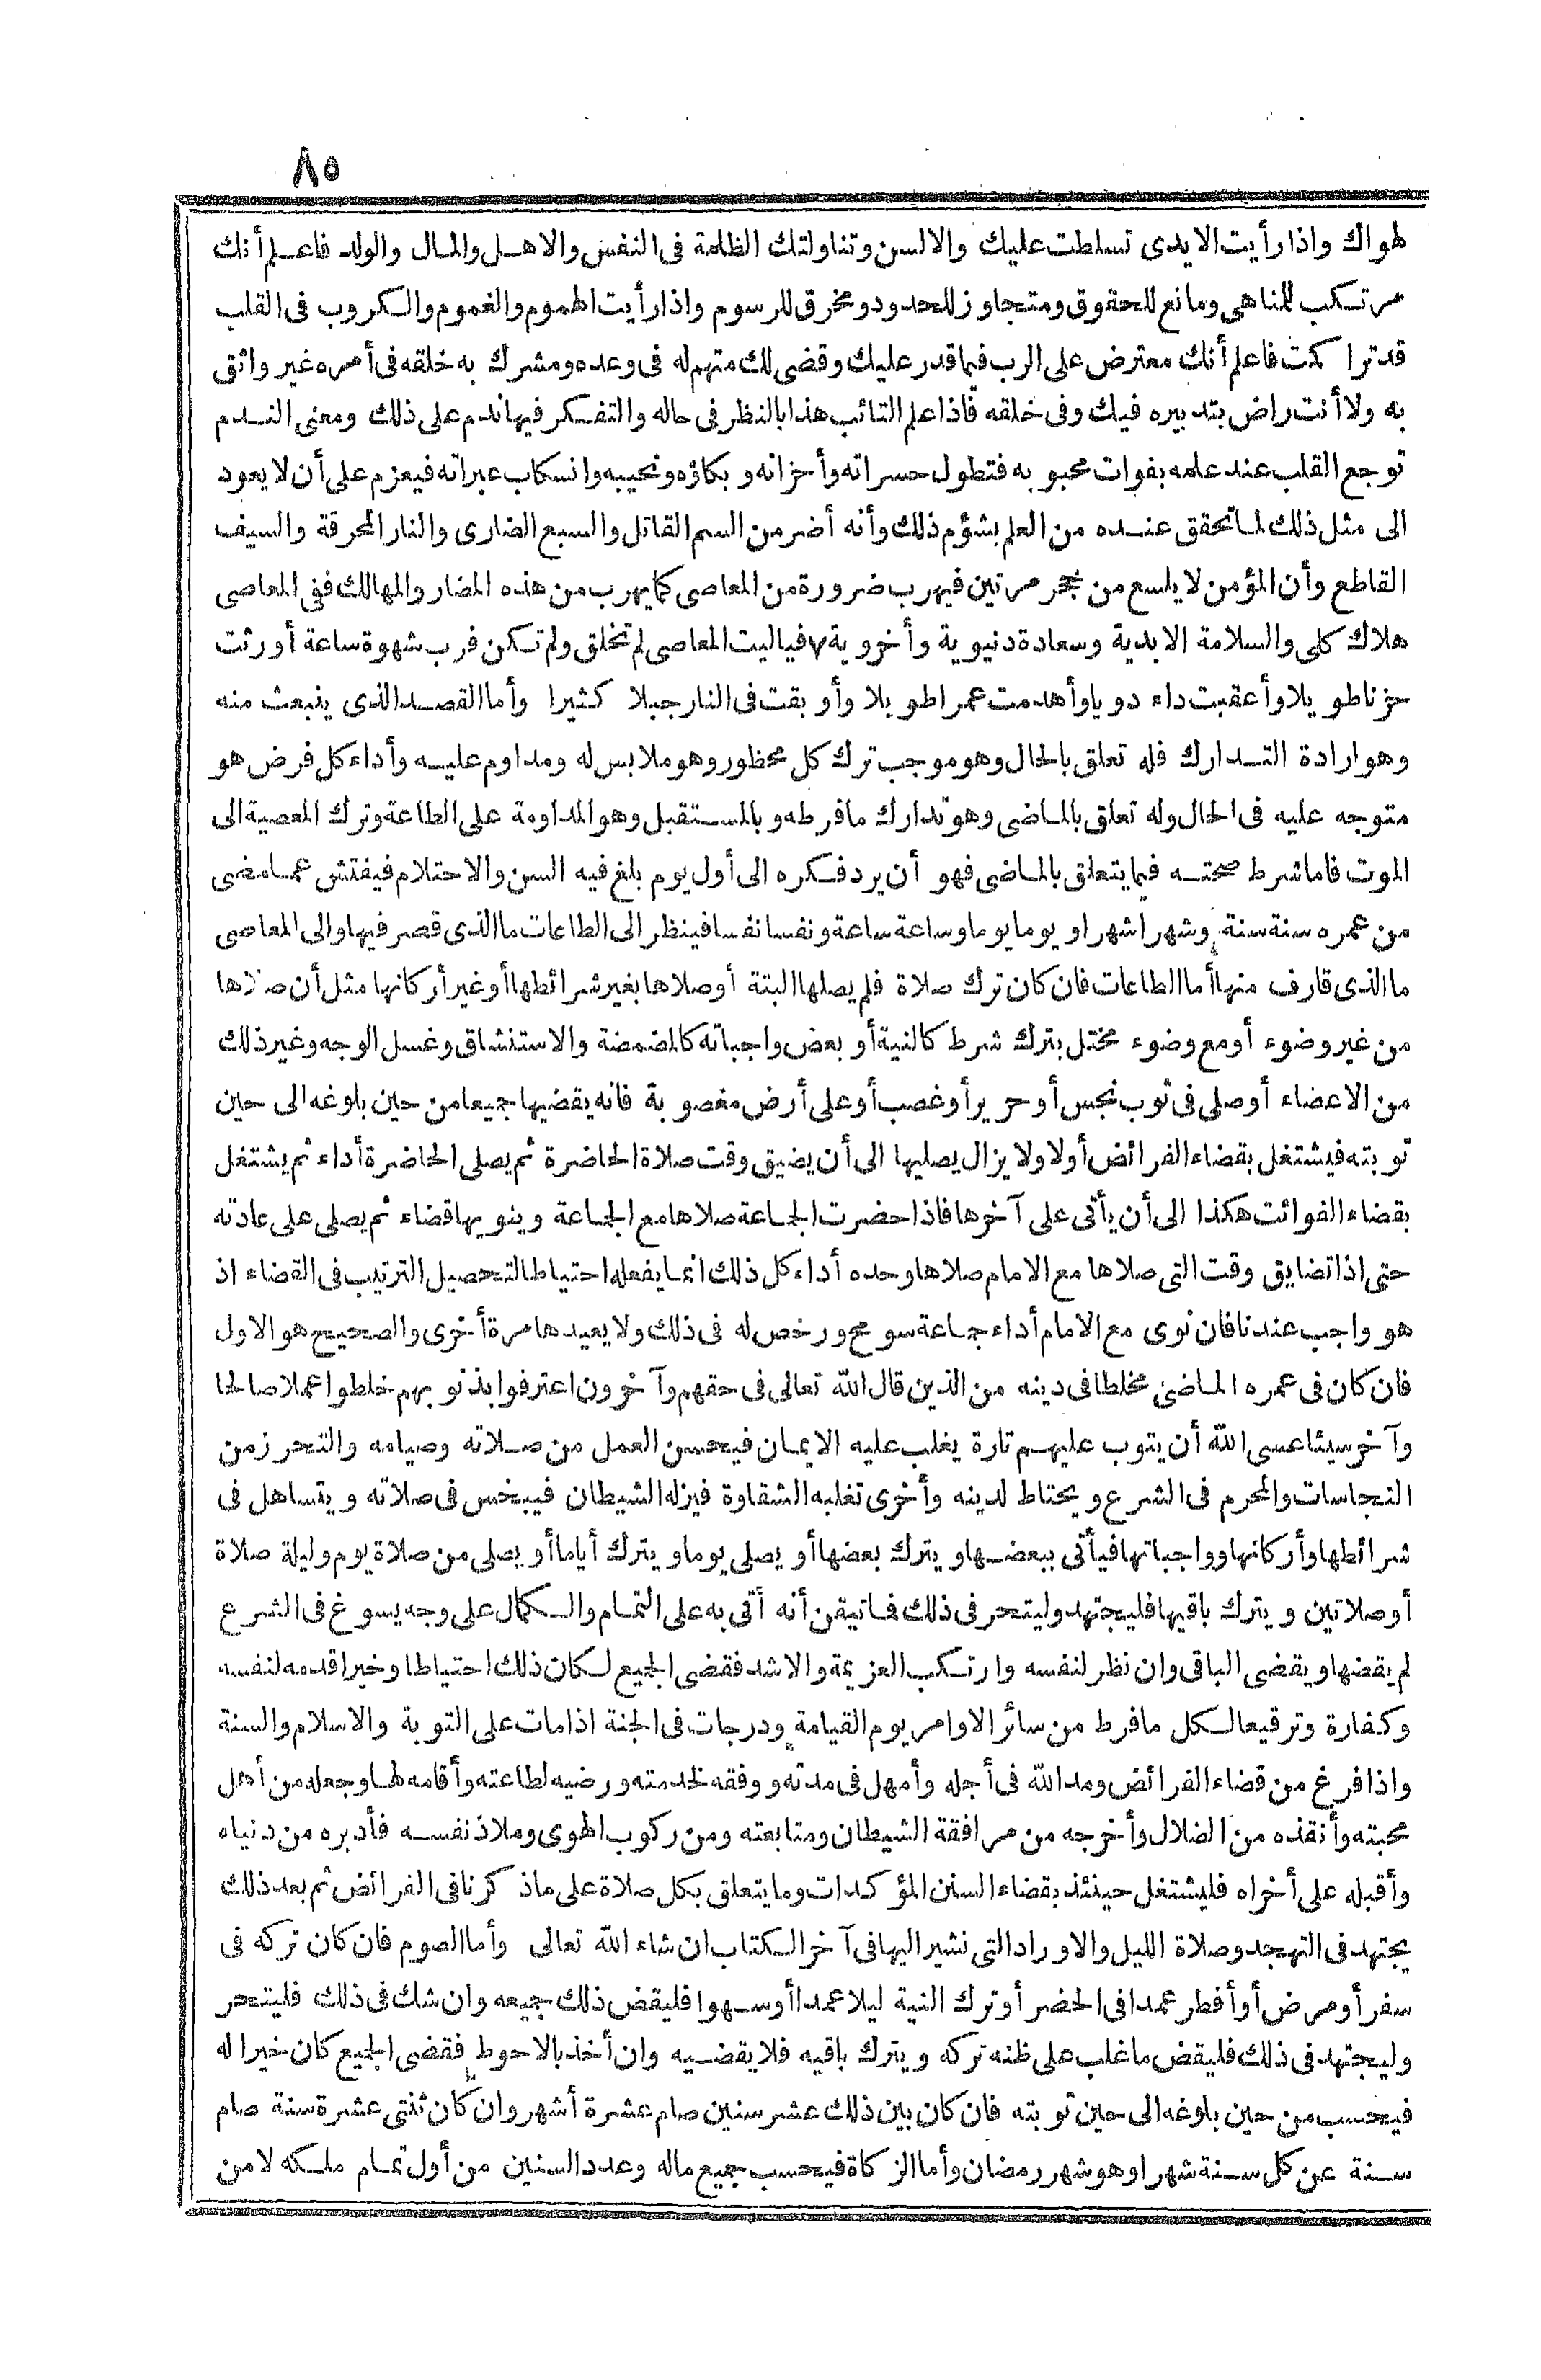 ٨٥
لهواك واذا رأيت الايدى تسلطت عليك والالسن وتناولتك الظلمة فى النفس والاهل والمال والولد فاعلم أنك
مرتكب للمناهى ومانع للحقوق ومتجاوز للحدود ومخرق للرسوم واذا رأيت الهموم والغموم والكروب فى القلب
قد تراكمت فاعلم أنك معترض على الرب فيما قدر عليك وقضى لك متهم له فى وعده ومشرك به خلقه فى أمره غير واثق
به ولا أنت راض بتدبيره فيك وفى خلقه فاذا علم التائب هذا بالنظر فى حاله والتفكر فيها ندم على ذلك ومعنى الندم
توجع القلب عند علمه بفوات محبوبه فتطول حسراته وأحزانه وبكاؤه ونحيبه وانسكاب عبراته فيعزم على أن لا يعود
الى مثل ذلك لما تحقق عنده من العلم بشؤم ذلك وأنه أضر من السم القاتل والسبع الضارى والنار المحرقة والسيف
القاطع وأن المؤمن لا يلسع من حجر مرتين فيهرب ضرورة من المعاصى كما يهرب من هذه المضار والمهالك ففى المعاصى
هلاك كلى والسلامة الابدية وسعادة دنيوية وأخروية ٧ فياليت المعاصى لم تخلق ولم تكن فرب شهوة ساعة أورثت
حزنا طويلا وأعقبت داء دويا وأهدمت عمرا طويلا وأوبقت فى النار جبلا كثيرا وأما القصد الذى ينبعث منه
وهو ارادة التدارك فله تعلق بالحال وهو موجب ترك كل محظور وهو ملابس له ومداوم عليه وأداء كل فرض هو
متوجه عليه فى الحال وله تعلق بالماضى وهو تدارك ما فرطه وبالمستقبل وهو المداومة على الطاعة وترك المعصية الى
الموت فاما شرط صحته فيما يتعلق بالماضى فهو أن يرد فكره الى أول يوم بلغ فيه السن والاحتلام فيفتش عما مضى
من عمره سنة سنة وشهرا شهرا ويوما يوما وساعة ساعة ونفسا نفسا فينظر الى الطاعات ما الذى قصر فيها والى المعاصى
ما الذى قارف منها أما الطاعات فان كان ترك صلاة فلم يصلها البتة أو صلاها بغير شرائطها أو غير أركانها مثل أن صلاها
من غير وضوء أو مع وضوء مختل بترك شرط كالنية أو بعض واجباته كالمضمضة والاستنشاق وغسل الوجه وغير ذلك
من الاعضاء أو صلى فى ثوب نجس أو حرير أو غصب أو على أرض مغصوبة فانه يقضيها جميعا من حين بلوغه الى حين
توبته فيشتغل بقضاء الفرائض أولا ولا يزال يصليها الى أن يضيق وقت صلاة الحاضرة ثم يصلى الحاضرة أداء ثم يشتغل
بقضاء الفوائت هكذا الى أن يأتى على آخرها فاذا حضرت الجماعة صلاها مع الجماعة وينوبها قضاء ثم يصلى على عادته
حتى اذا تضايق وقت التى صلاها مع الامام صلاها وحده أداء كل ذلك انما يفعله احتياطا لتحصيل الترتيب فى القضاء اذ
هو واجب عندنا فان نوى مع الامام أداء جماعة سومح ورخص له فى ذلك ولا يعيدها مرة أخرى والصحيح هو الاول
فان كان فى عمره الماضى مخلطا فى دينه من الذين قال الله تعالى فى حقهم وآخرون اعترفوا بذنوبهم خلطوا عملا صالحا
وآخر سيئا عسى الله أن يتوب عليهم تارة يغلب عليه الايمان فيحسن العمل من صلاته وصيامه والتحرز من
النجاسات والمحرم فى الشرع ويحتاط لدينه وأخرى تغلبه الشقاوة فيزله الشيطان فيبخس فى صلاته ويتساهل فى
شرائطها وأركانها وواجباتها فيأتى ببعضها ويترك بعضها أو يصلى يوما ويترك أياما أو يصلى من صلاة يوم وليلة صلاة
أو صلاتين ويترك باقيها فليجتهد وليتحر فى ذلك فما تيقن أنه أتى به على التمام والكمال على وجه يسوغ فى الشرع
لم يقضها ويقضى الباقى وان نظر لنفسه وارتكب العزيمة والاشد فقضى الجميع لكان ذلك احتياطا وخيرا قدمه لنفسه
وكفارة وترقيعا لكل ما فرط من سائر الاوامر يوم القيامة ودرجات فى الجنة اذا مات على التوبة والاسلام والسنة
واذا فرغ من قضاء الفرائض ومد الله فى أجله وأمهل فى مدته ووفقه لخدمته ورضيه لطاعته وأقامه لها وجعله من أهل
محبته وأنقذه من الضلال وأخرجه من مرافقة الشيطان ومتابعته ومن ركوب الهوى وملاذ نفسه فأدبره من دنياه
وأقبله على أخراه فليشتغل حينئذ بقضاء السنن المؤكدات وما يتعلق بكل صلاة على ما ذكرنا فى الفرائض ثم بعد ذلك
يجتهد فى التهجد وصلاة الليل والاوراد التى نشير اليها فى آخر الكتاب ان شاء الله تعالى وأما الصوم فان كان تركه فى
سفر أو مرض أو أفطر عمدا فى الحضر أو ترك النية ليلا عمدا أو سهوا فليقض ذلك جميعه وان شك فى ذلك فليتحر
وليجتهد فى ذلك فليقض ما غلب على ظنه تركه ويترك باقيه فلا يقضيه وان أخذ بالاحوط فقضى الجميع كان خيرا له
فيحسب من حين بلوغه الى حين توبته فان كان بين ذلك عشر سنين صام عشرة أشهر وان كان ثنتى عشرة سنة صام
سنة عن كل سنة شهرا وهو شهر رمضان وأما الزكاة فيحسب جميع ماله وعدد السنين من أول تمام ملكه لا من